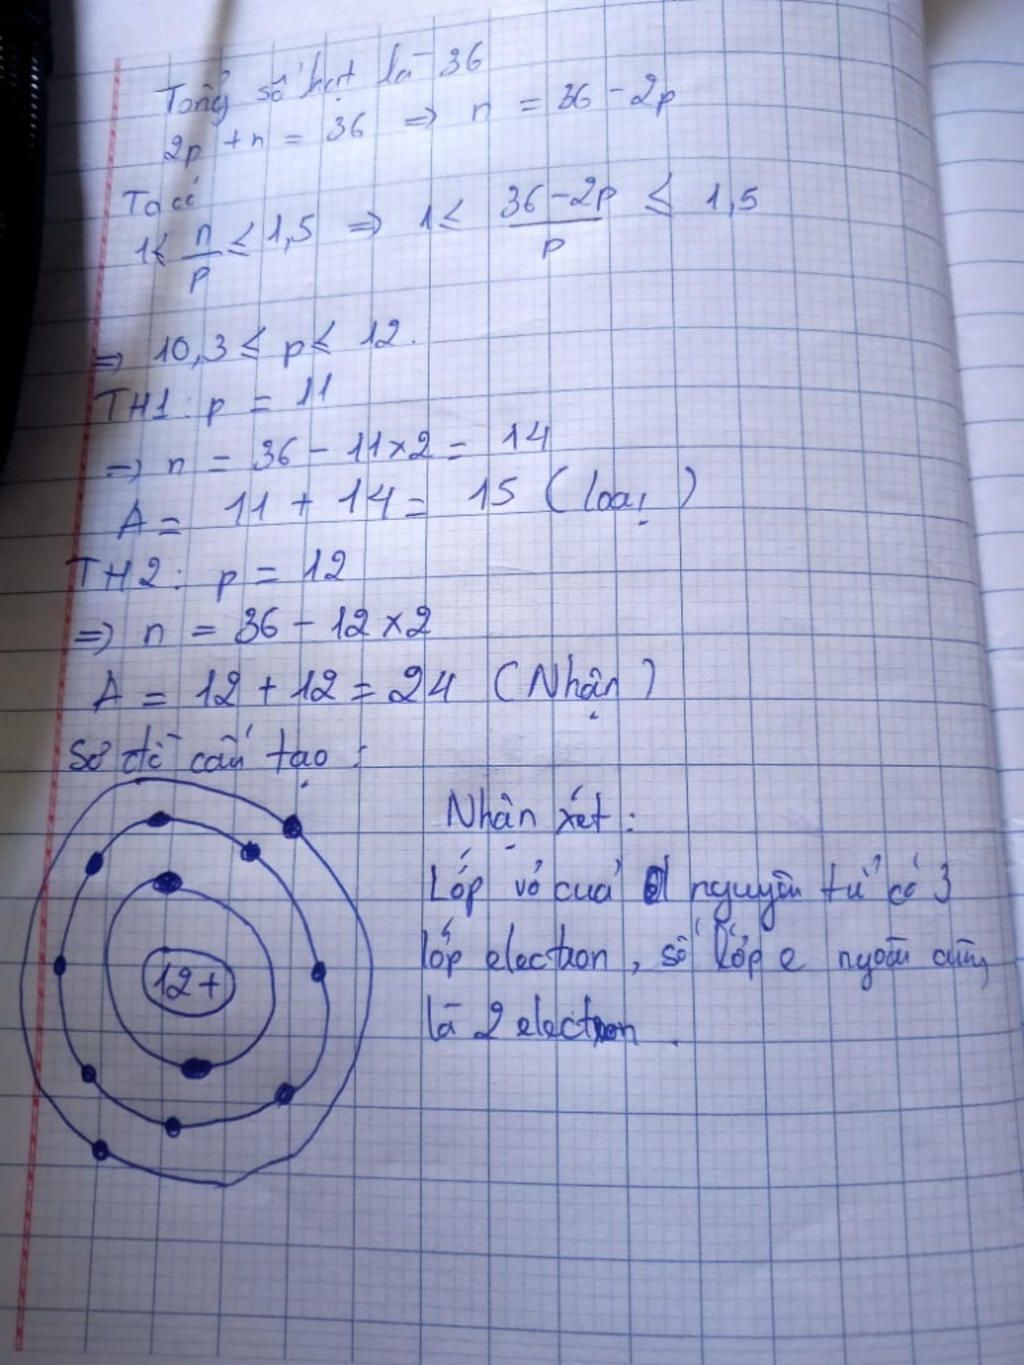 Tổng số hạt là 36
2p + n = 36 => n = 36 - 2p
Ta có
1 ≤ n/p ≤ 1,5 => 1 ≤ (36-2p)/p ≤ 1,5
=> 10,3 ≤ p ≤ 12.
TH1: p = 11
=> n = 36 - 11×2 = 14
A = 11 + 14 = 15 (loại)
TH2: p = 12
=> n = 36 - 12×2
A = 12 + 12 = 24 (Nhận)
Sơ đồ cấu tạo:
12+
Nhận xét:
Lớp vỏ của nguyên tử có 3
lớp electron, số lớp e ngoài cùng
là 2 electron.